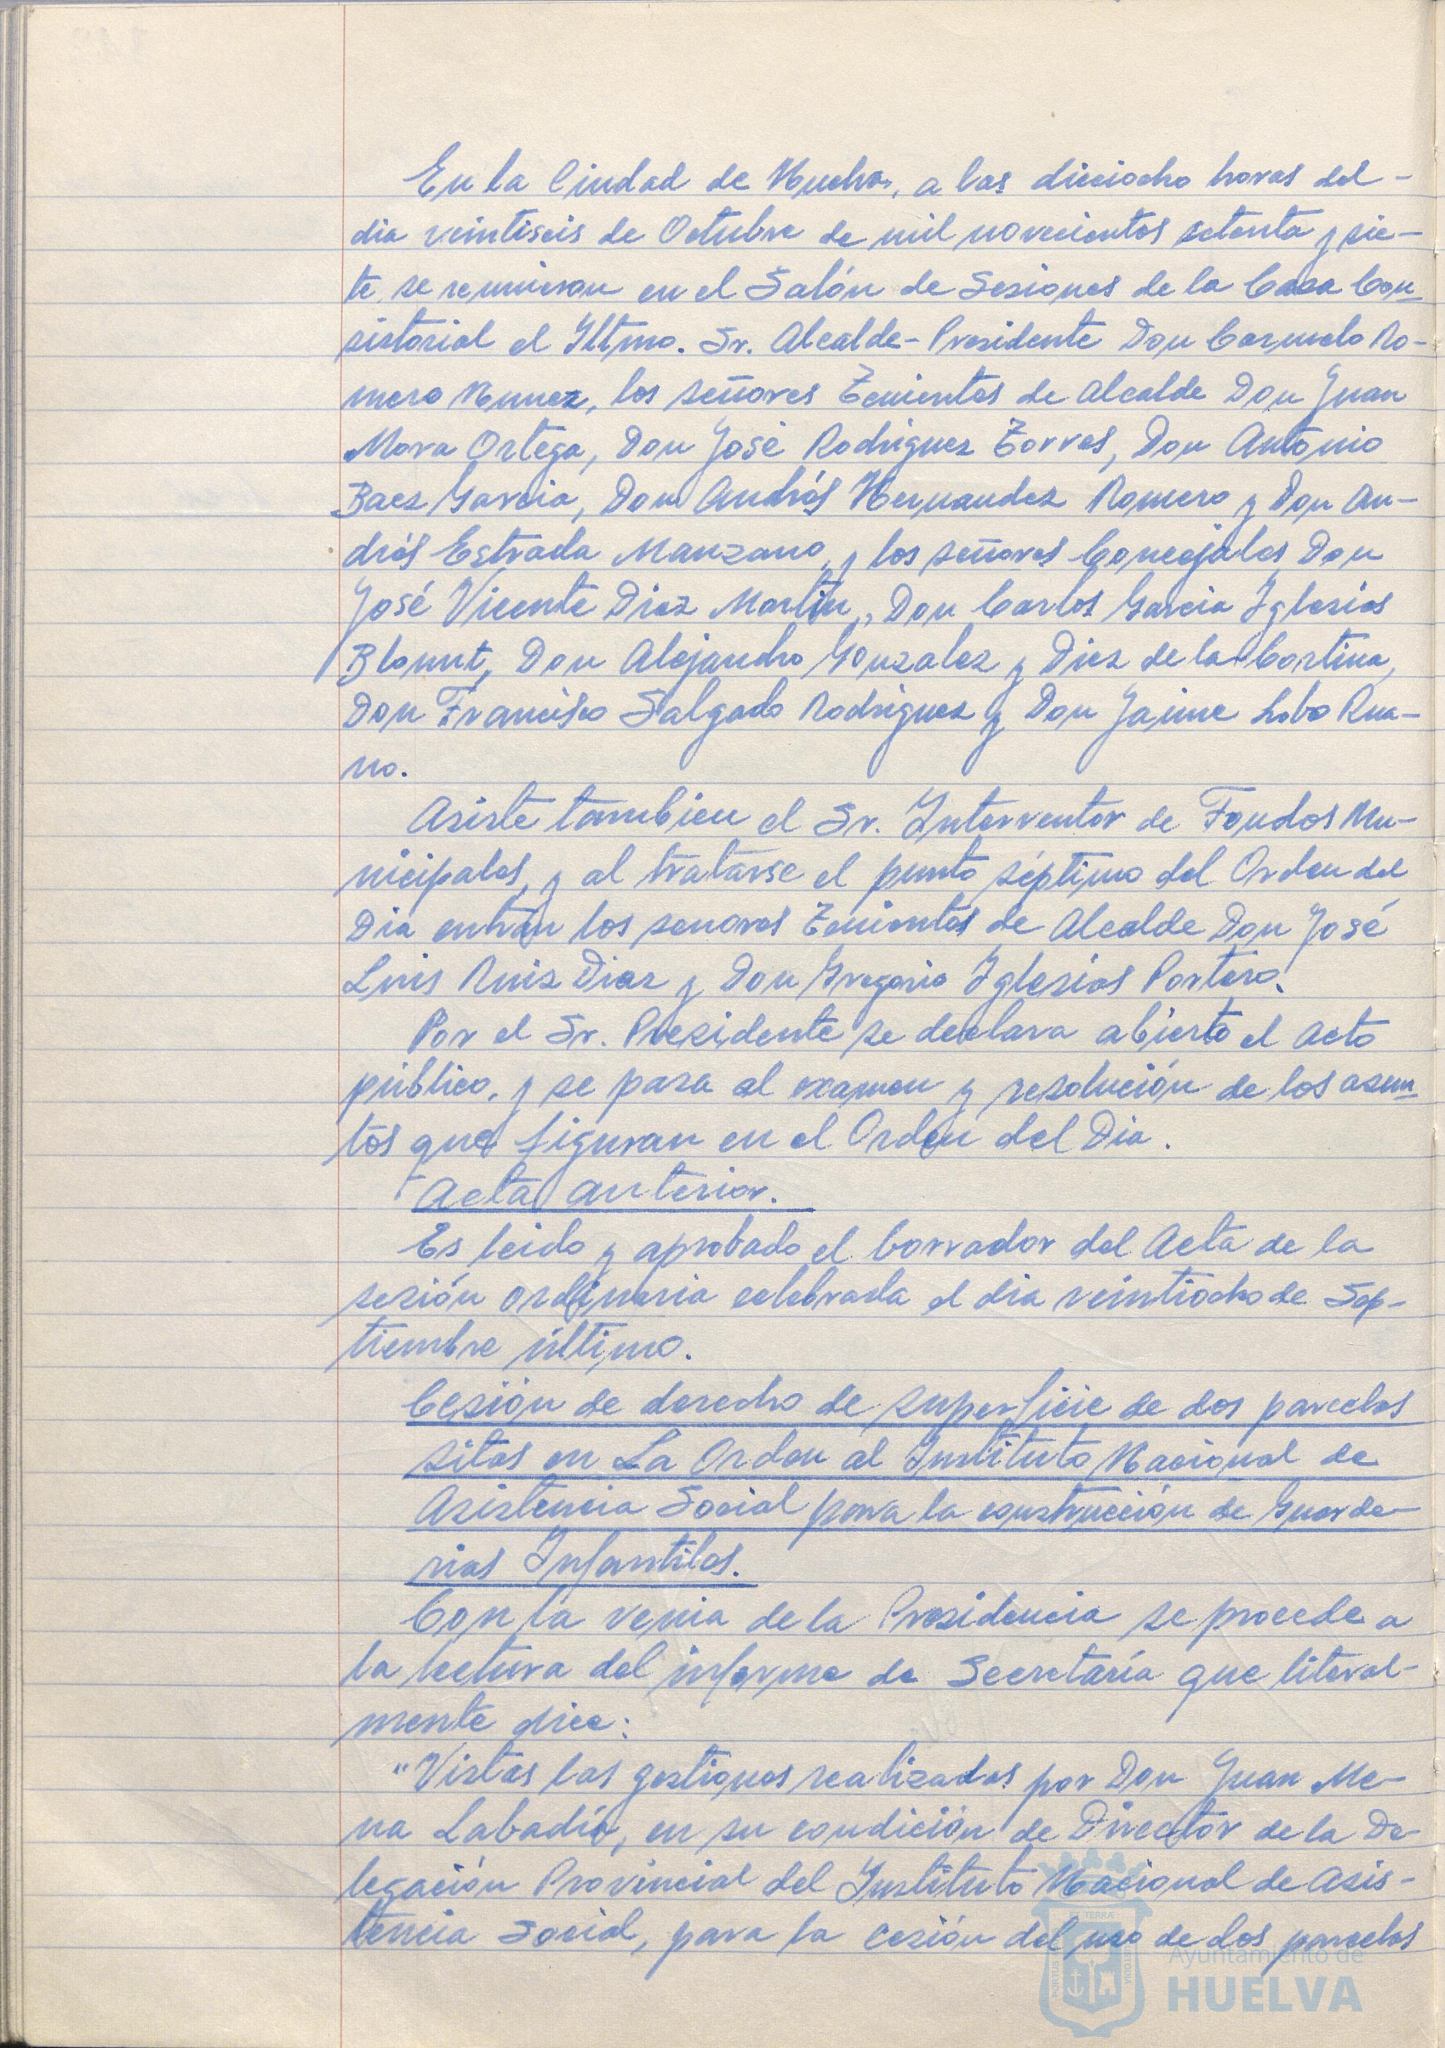 En la Ciudad de Huelva, a las dieciocho horas del-
dia veintiseis de Octubre de mil novecientos setenta y sie-
te, se reunieron en el Salón de Sesiones de la Casa Con-
sistorial el Iltmo. Sr. Alcalde-Presidente Don Carmelo Ro-
mero Nuñez, los señores Tenientes de Alcalde Don Juan
Mora Ortega, Don José Rodriguez Torres, Don Antonio
Baez Garcia, Don Andrés Hernandez Romero y Don An-
drés Estrada Manzano, y los señores Concejales Don
José Vicente Diaz Martin, Don Carlos Garcia Iglesias
Blount, Don Alejandro Gonzalez y Diez de la Cortina,
Don Francisco Salgado Rodriguez y Don Jaime Lobo Rua-
no.
Asiste tambien el Sr. Interventor de Fondos Mu-
nicipales, y al tratarse el punto séptimo del Orden del
Dia entran los señores Tenientes de Alcalde Don José
Luis Ruiz Diaz y Don Gregorio Iglesias Portero.
Por el Sr. Presidente se declara abierto el acto
público, y se pasa al examen y resolución de los asun-
tos que figuran en el Orden del Dia.
Acta anterior.
Es leido y aprobado el borrador del Acta de la
sesión ordinaria celebrada el dia veintiocho de Sep-
tiembre último.
Cesión de derecho de superficie de dos parcelas
sitas en La Orden al Instituto Nacional de
Asistencia Social para la construcción de Guarde-
rias Infantiles.
Con la venia de la Presidencia se procede a
la lectura del informe de Secretaría que literal-
mente dice:
"Vistas las gestiones realizadas por Don Juan Me-
na Labadío, en su condición de Director de la De-
legación Provincial del Instituto Nacional de Asis-
tencia Social, para la cesión del uso de dos parcelas
Ayuntamiento de
HUELVA